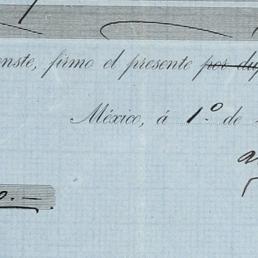 conste, firmo el presente por du
México, á 1.º de
a
0.—